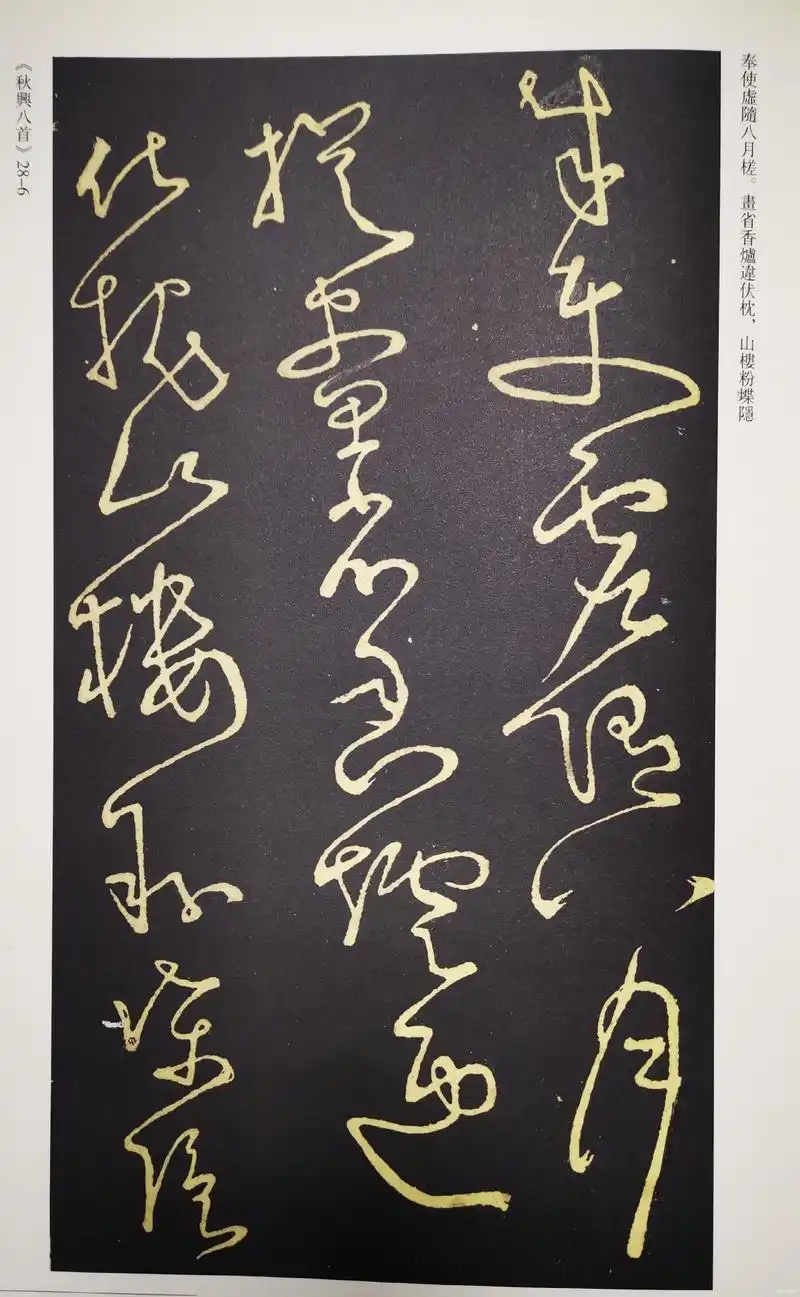 奉使虛隨八月槎。畫省香爐違伏枕，山樓粉蝶隱
奉使虛隨八月
槎畫省香爐違
伏枕山樓粉蝶隱
《秋興八首》28-6